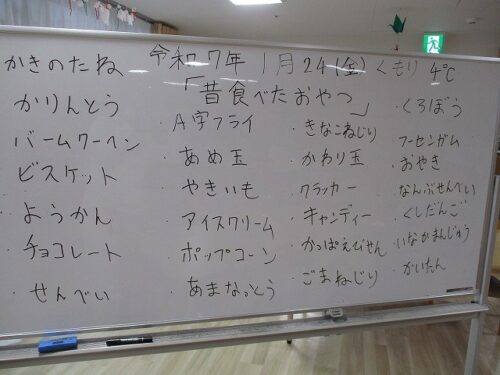 令和7年 1月24(金)くもり 4℃
「昔食べたおやつ」
かきのたね
・かりんとう
・バームクーヘン
・ビスケット
・ようかん
・チョコレート
・せんべい
・A字フライ
・あめ玉
・やきいも
・アイスクリーム
・ポップコーン
・あまなっとう
・きなこねじり
・かわり玉
・クラッカー
・キャンディー
・かっぱえびせん
・ごまねじり
・くろぼう
・フーセンガム
・おやき
・なんぶせんべい
・くしだんご
・いなかまんじゅう
・かいたん